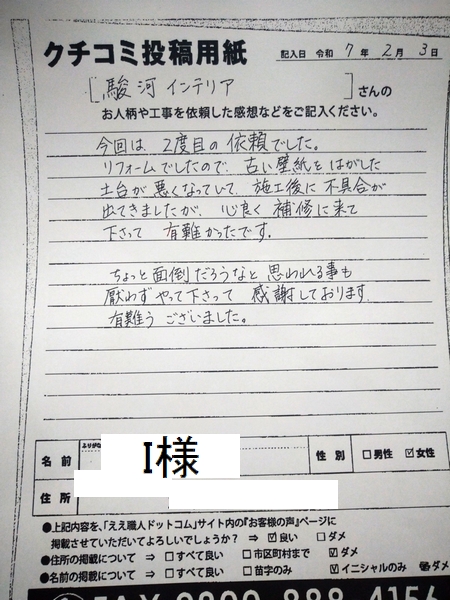 クチコミ投稿用紙
記入日 令和 7 年 2 月 3 日
[駿河インテリア]さんの
お人柄や工事を依頼した感想などをご記入ください。
今回は 2度目の依頼でした。
リフォームでしたので、古い壁紙をはがした
土台が悪くなっていて、施工後に不具合が
出てきましたが、心良く補修に来て
下さって 有難かったです。
ちょっと面倒だろうなと思われる事も
厭わずやって下さって 感謝しております
有難うございました。
ふりがな
名前 I様 性別 □男性 ☑女性
住所
●上記内容を、「ええ職人ドットコム」サイト内の『お客様の声』ページに
掲載させていただいてよろしいでしょうか? ⇒ ☑良い □ダメ
●住所の掲載について ⇒ □すべて良い □市区町村まで ☑ダメ
●名前の掲載について ⇒ □すべて良い □苗字のみ ☑イニシャルのみ ダメ
FAX 0800-888-4156